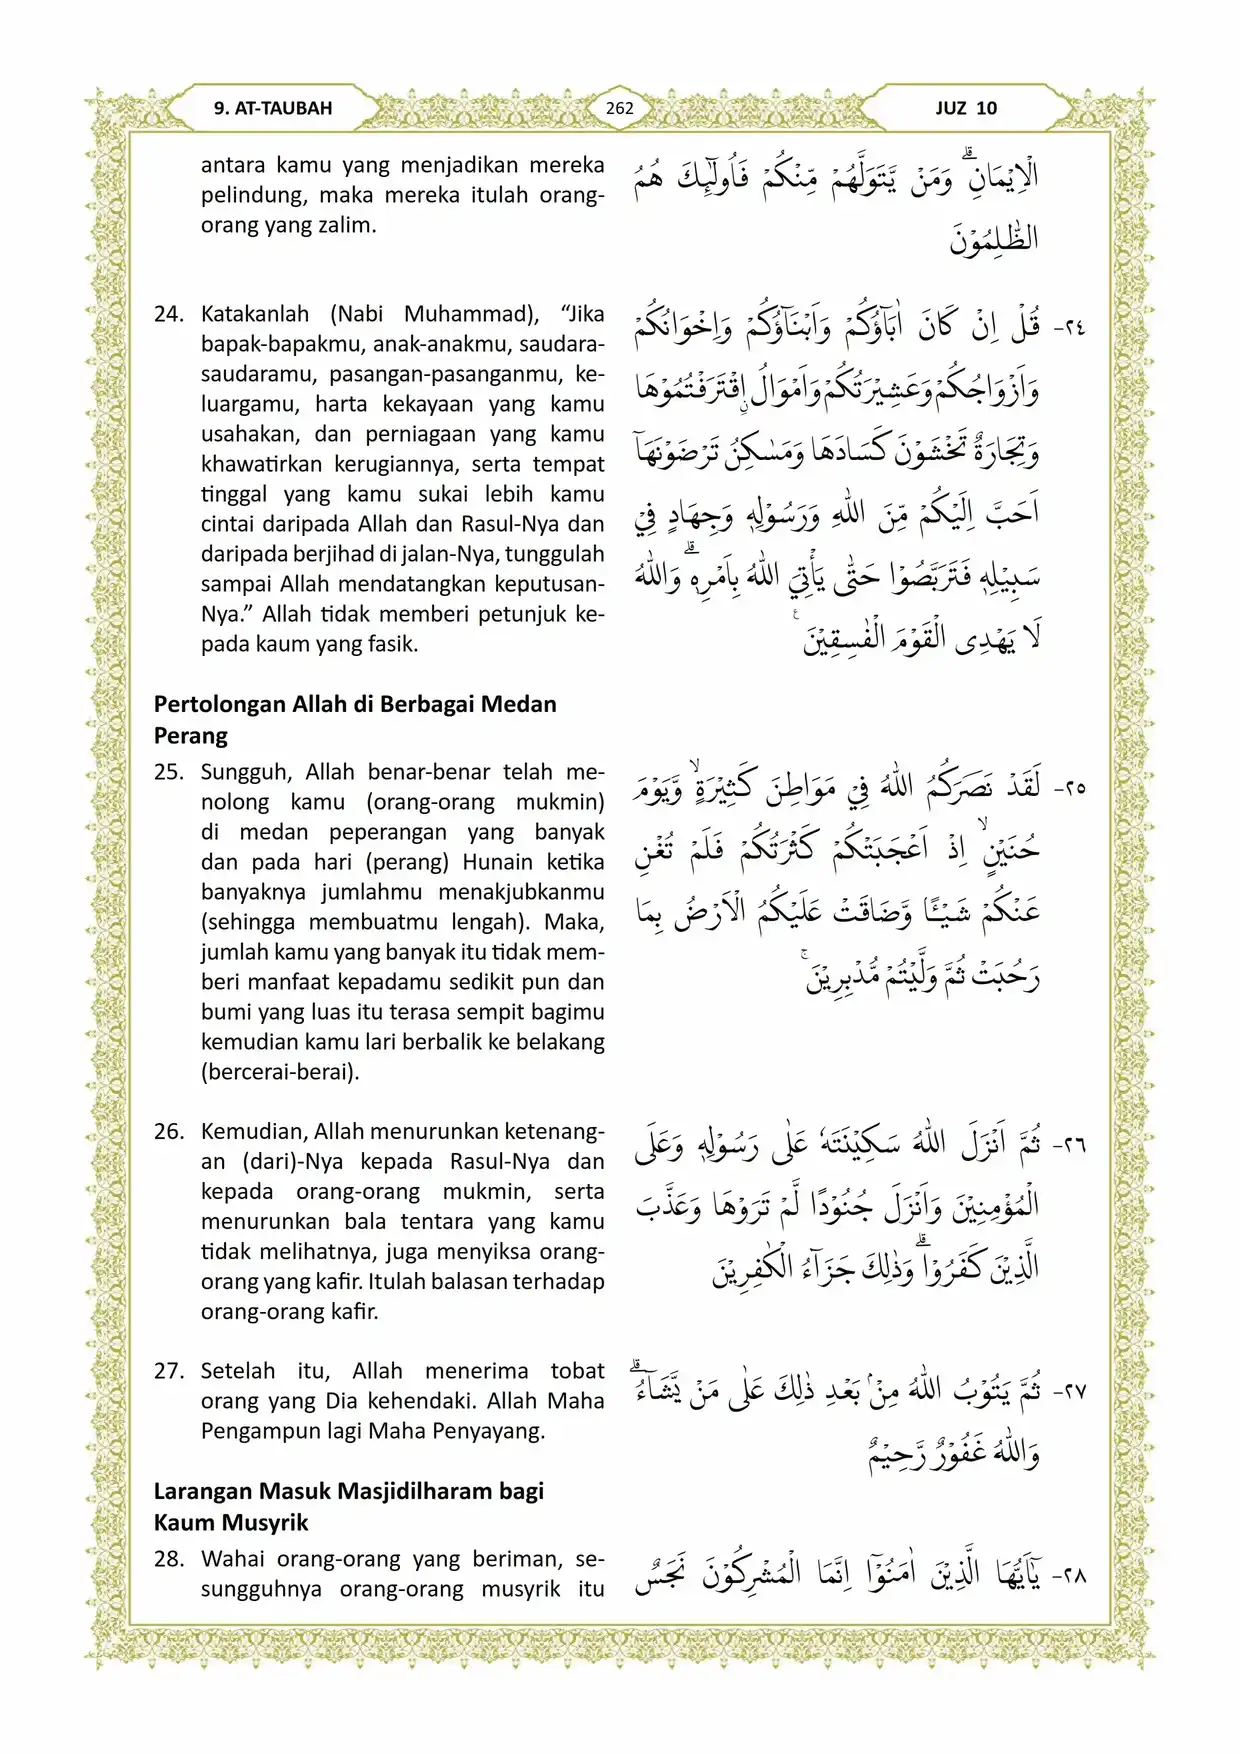 9. AT-TAUBAH
262
JUZ 10
antara kamu yang menjadikan mereka
pelindung, maka mereka itulah orang-
orang yang zalim.
الْاِيْمَانِۗ وَمَنْ يَّتَوَلَّهُمْ مِّنْكُمْ فَاُولٰۤىِٕكَ هُمُ
الظّٰلِمُوْنَ
24. Katakanlah (Nabi Muhammad), “Jika
bapak-bapakmu, anak-anakmu, saudara-
saudaramu, pasangan-pasanganmu, ke-
luargamu, harta kekayaan yang kamu
usahakan, dan perniagaan yang kamu
khawatirkan kerugiannya, serta tempat
tinggal yang kamu sukai lebih kamu
cintai daripada Allah dan Rasul-Nya dan
daripada berjihad di jalan-Nya, tunggulah
sampai Allah mendatangkan keputusan-
Nya.” Allah tidak memberi petunjuk ke-
pada kaum yang fasik.
٢٤- قُلْ اِنْ كَانَ اٰبَاۤؤُكُمْ وَاَبْنَاۤؤُكُمْ وَاِخْوَانُكُمْ
وَاَزْوَاجُكُمْ وَعَشِيْرَتُكُمْ وَاَمْوَالُ ِۨاقْتَرَفْتُمُوْهَا
وَتِجَارَةٌ تَخْشَوْنَ كَسَادَهَا وَمَسٰكِنُ تَرْضَوْنَهَآ
اَحَبَّ اِلَيْكُمْ مِّنَ اللّٰهِ وَرَسُوْلِهٖ وَجِهَادٍ فِيْ
سَبِيْلِهٖ فَتَرَبَّصُوْا حَتّٰى يَأْتِيَ اللّٰهُ بِاَمْرِهٖۗ وَاللّٰهُ
لَا يَهْدِى الْقَوْمَ الْفٰسِقِيْنَ ࣖ
Pertolongan Allah di Berbagai Medan
Perang
25. Sungguh, Allah benar-benar telah me-
nolong kamu (orang-orang mukmin)
di medan peperangan yang banyak
dan pada hari (perang) Hunain ketika
banyaknya jumlahmu menakjubkanmu
(sehingga membuatmu lengah). Maka,
jumlah kamu yang banyak itu tidak mem-
beri manfaat kepadamu sedikit pun dan
bumi yang luas itu terasa sempit bagimu
kemudian kamu lari berbalik ke belakang
(bercerai-berai).
٢٥- لَقَدْ نَصَرَكُمُ اللّٰهُ فِيْ مَوَاطِنَ كَثِيْرَةٍۙ وَّيَوْمَ
حُنَيْنٍۙ اِذْ اَعْجَبَتْكُمْ كَثْرَتُكُمْ فَلَمْ تُغْنِ
عَنْكُمْ شَيْـًٔا وَّضَاقَتْ عَلَيْكُمُ الْاَرْضُ بِمَا
رَحُبَتْ ثُمَّ وَلَّيْتُمْ مُّدْبِرِيْنَۚ
26. Kemudian, Allah menurunkan ketenang-
an (dari)-Nya kepada Rasul-Nya dan
kepada orang-orang mukmin, serta
menurunkan bala tentara yang kamu
tidak melihatnya, juga menyiksa orang-
orang yang kafir. Itulah balasan terhadap
orang-orang kafir.
٢٦- ثُمَّ اَنْزَلَ اللّٰهُ سَكِيْنَتَهٗ عَلٰى رَسُوْلِهٖ وَعَلَى
الْمُؤْمِنِيْنَ وَاَنْزَلَ جُنُوْدًا لَّمْ تَرَوْهَا وَعَذَّبَ
الَّذِيْنَ كَفَرُوْاۗ وَذٰلِكَ جَزَاۤءُ الْكٰفِرِيْنَ
27. Setelah itu, Allah menerima tobat
orang yang Dia kehendaki. Allah Maha
Pengampun lagi Maha Penyayang.
٢٧- ثُمَّ يَتُوْبُ اللّٰهُ مِنْۢ بَعْدِ ذٰلِكَ عَلٰى مَنْ يَّشَاۤءُۗ
وَاللّٰهُ غَفُوْرٌ رَّحِيْمٌ
Larangan Masuk Masjidilharam bagi
Kaum Musyrik
28. Wahai orang-orang yang beriman, se-
sungguhnya orang-orang musyrik itu
٢٨- يٰٓاَيُّهَا الَّذِيْنَ اٰمَنُوْٓا اِنَّمَا الْمُشْرِكُوْنَ نَجَسٌ